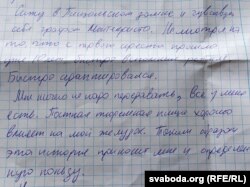 Сижу в Пищаловском замке и чувствую
себя графом Монтекристо. Несмотря на
то, что с первого ареста прошло
быстро адаптировался.
Мне ничего не надо передавать, все у меня
есть. Постная тюремная пища хорошо
влияет на мой желудок. Таким образом
эта история приносит мне и определен-
ную пользу.
svaboda.org (RFE/RL)